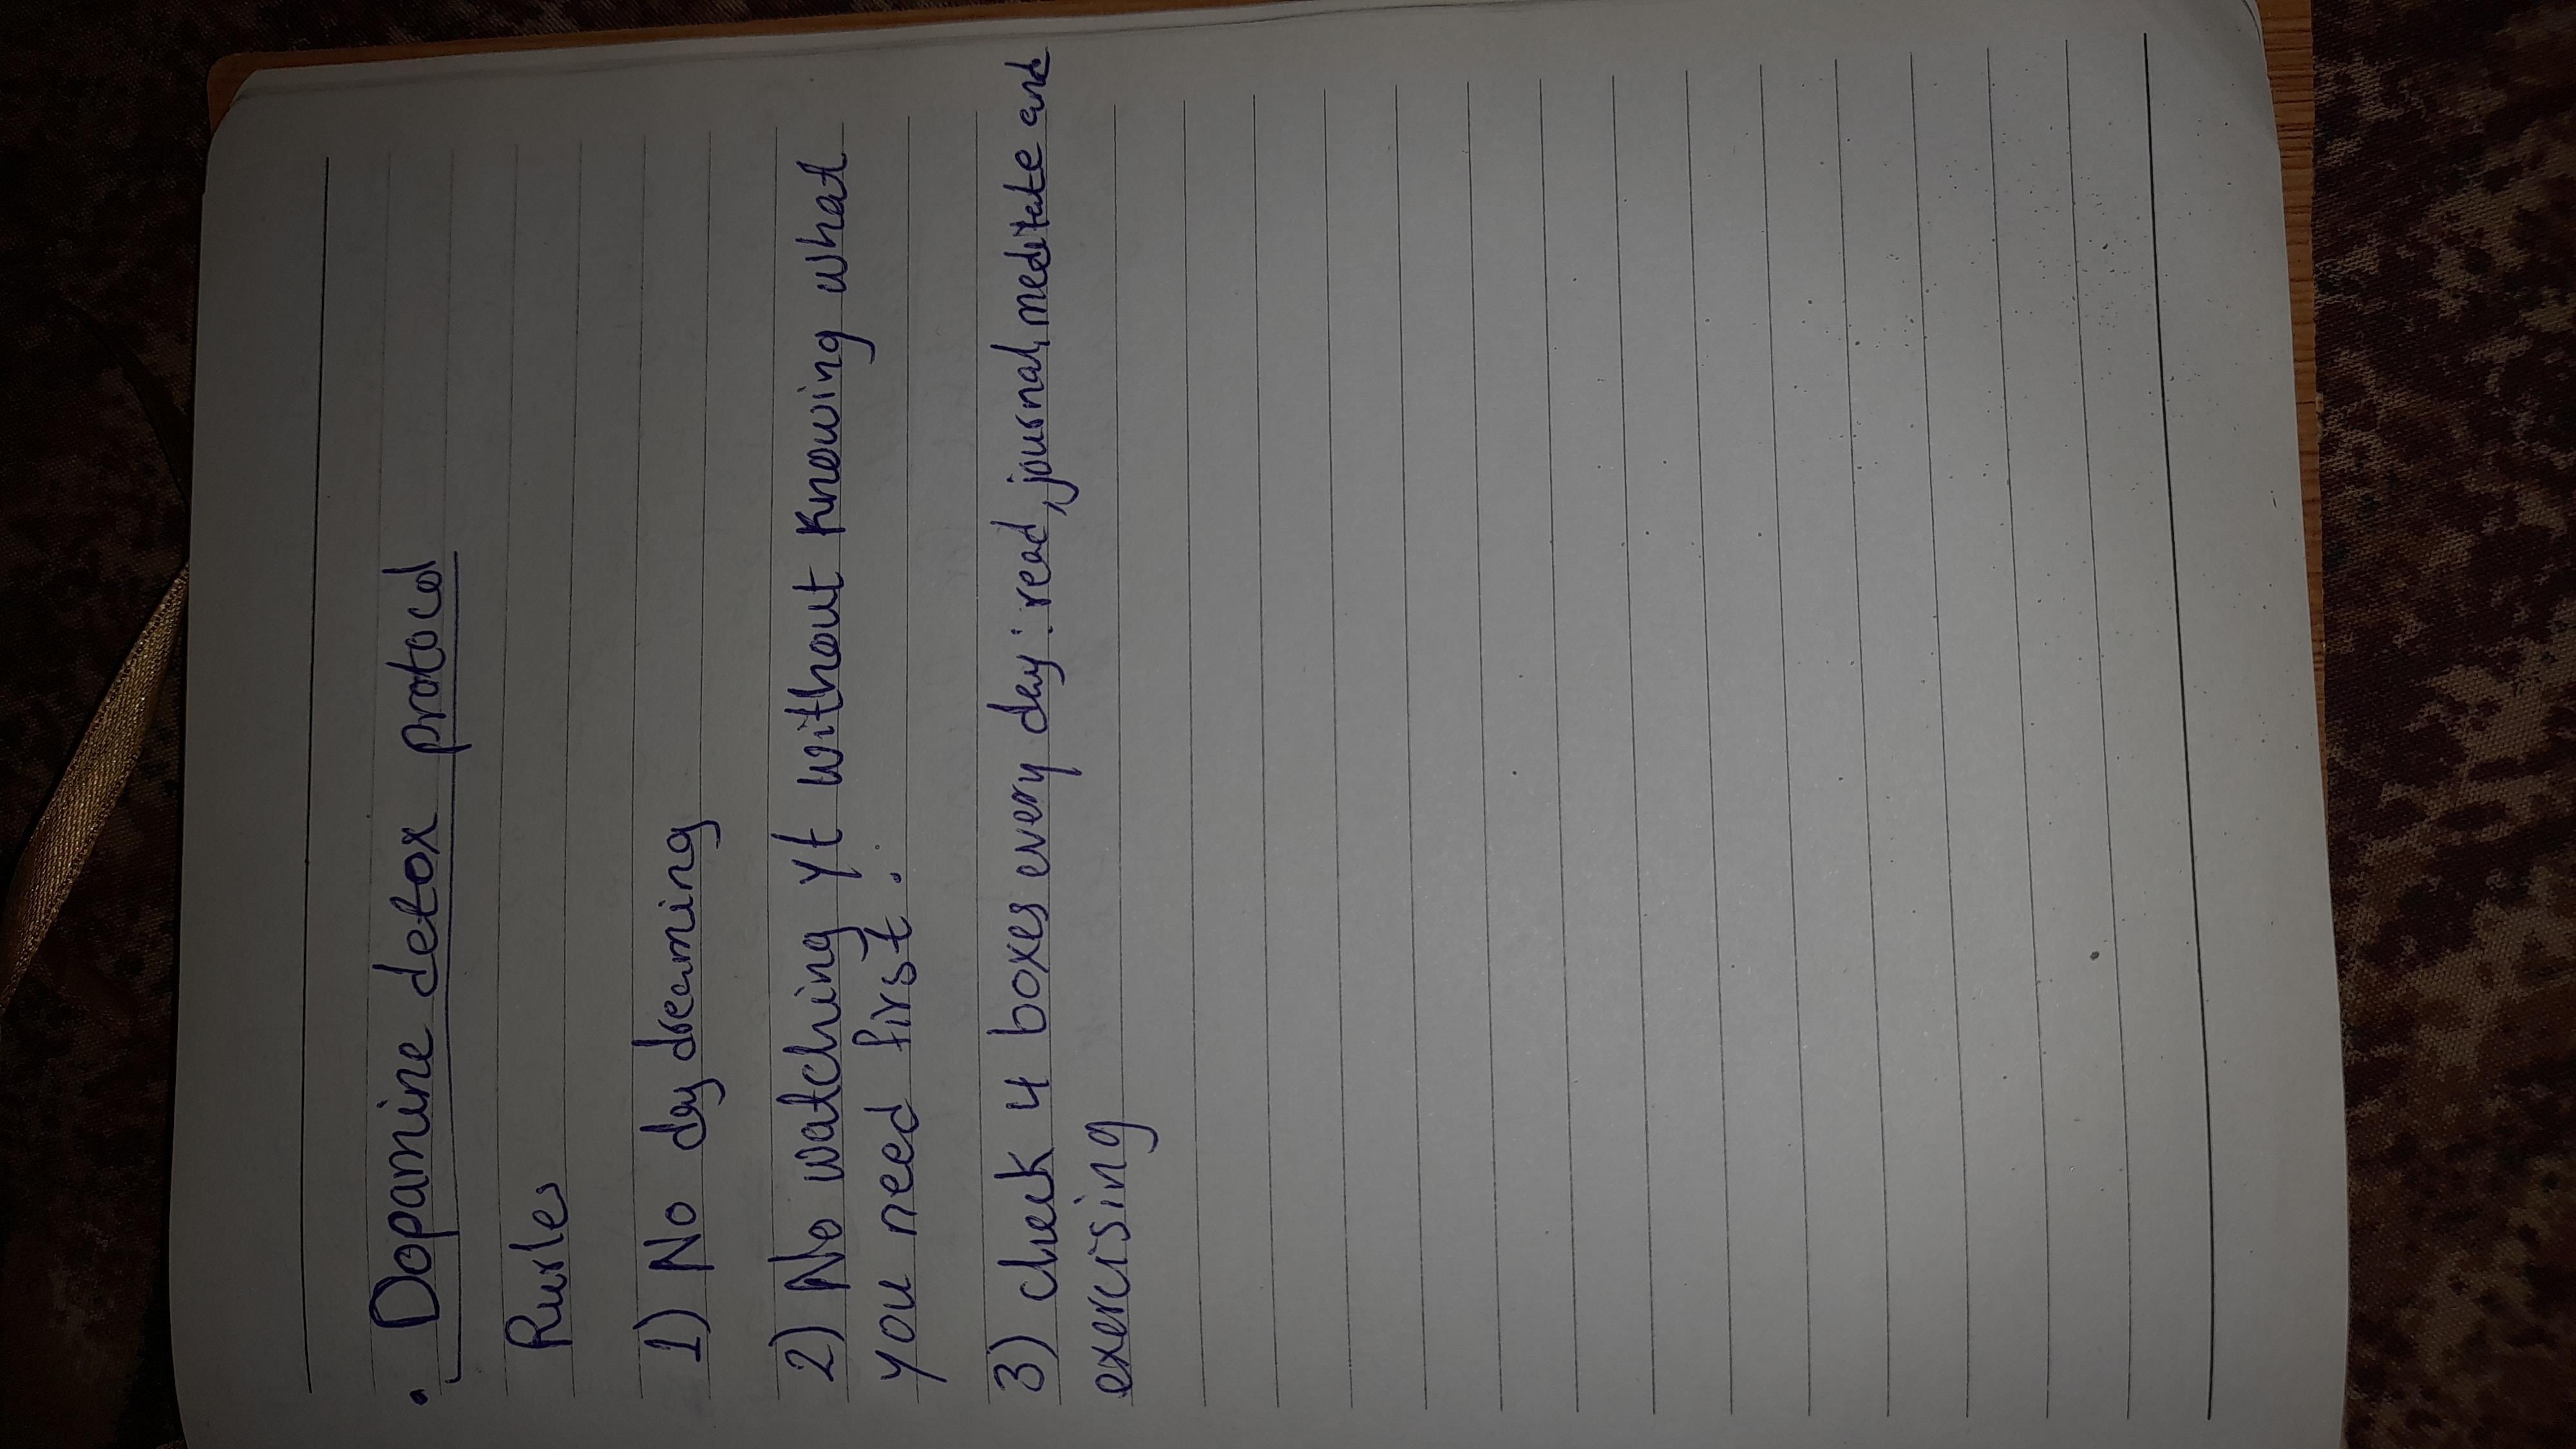 . Dopamine detox protocol
Rules
1) No daydreaming
2) No watching yt without knowing what
you need first.
3) check 4 boxes every day: read, journal, meditate and
exercising